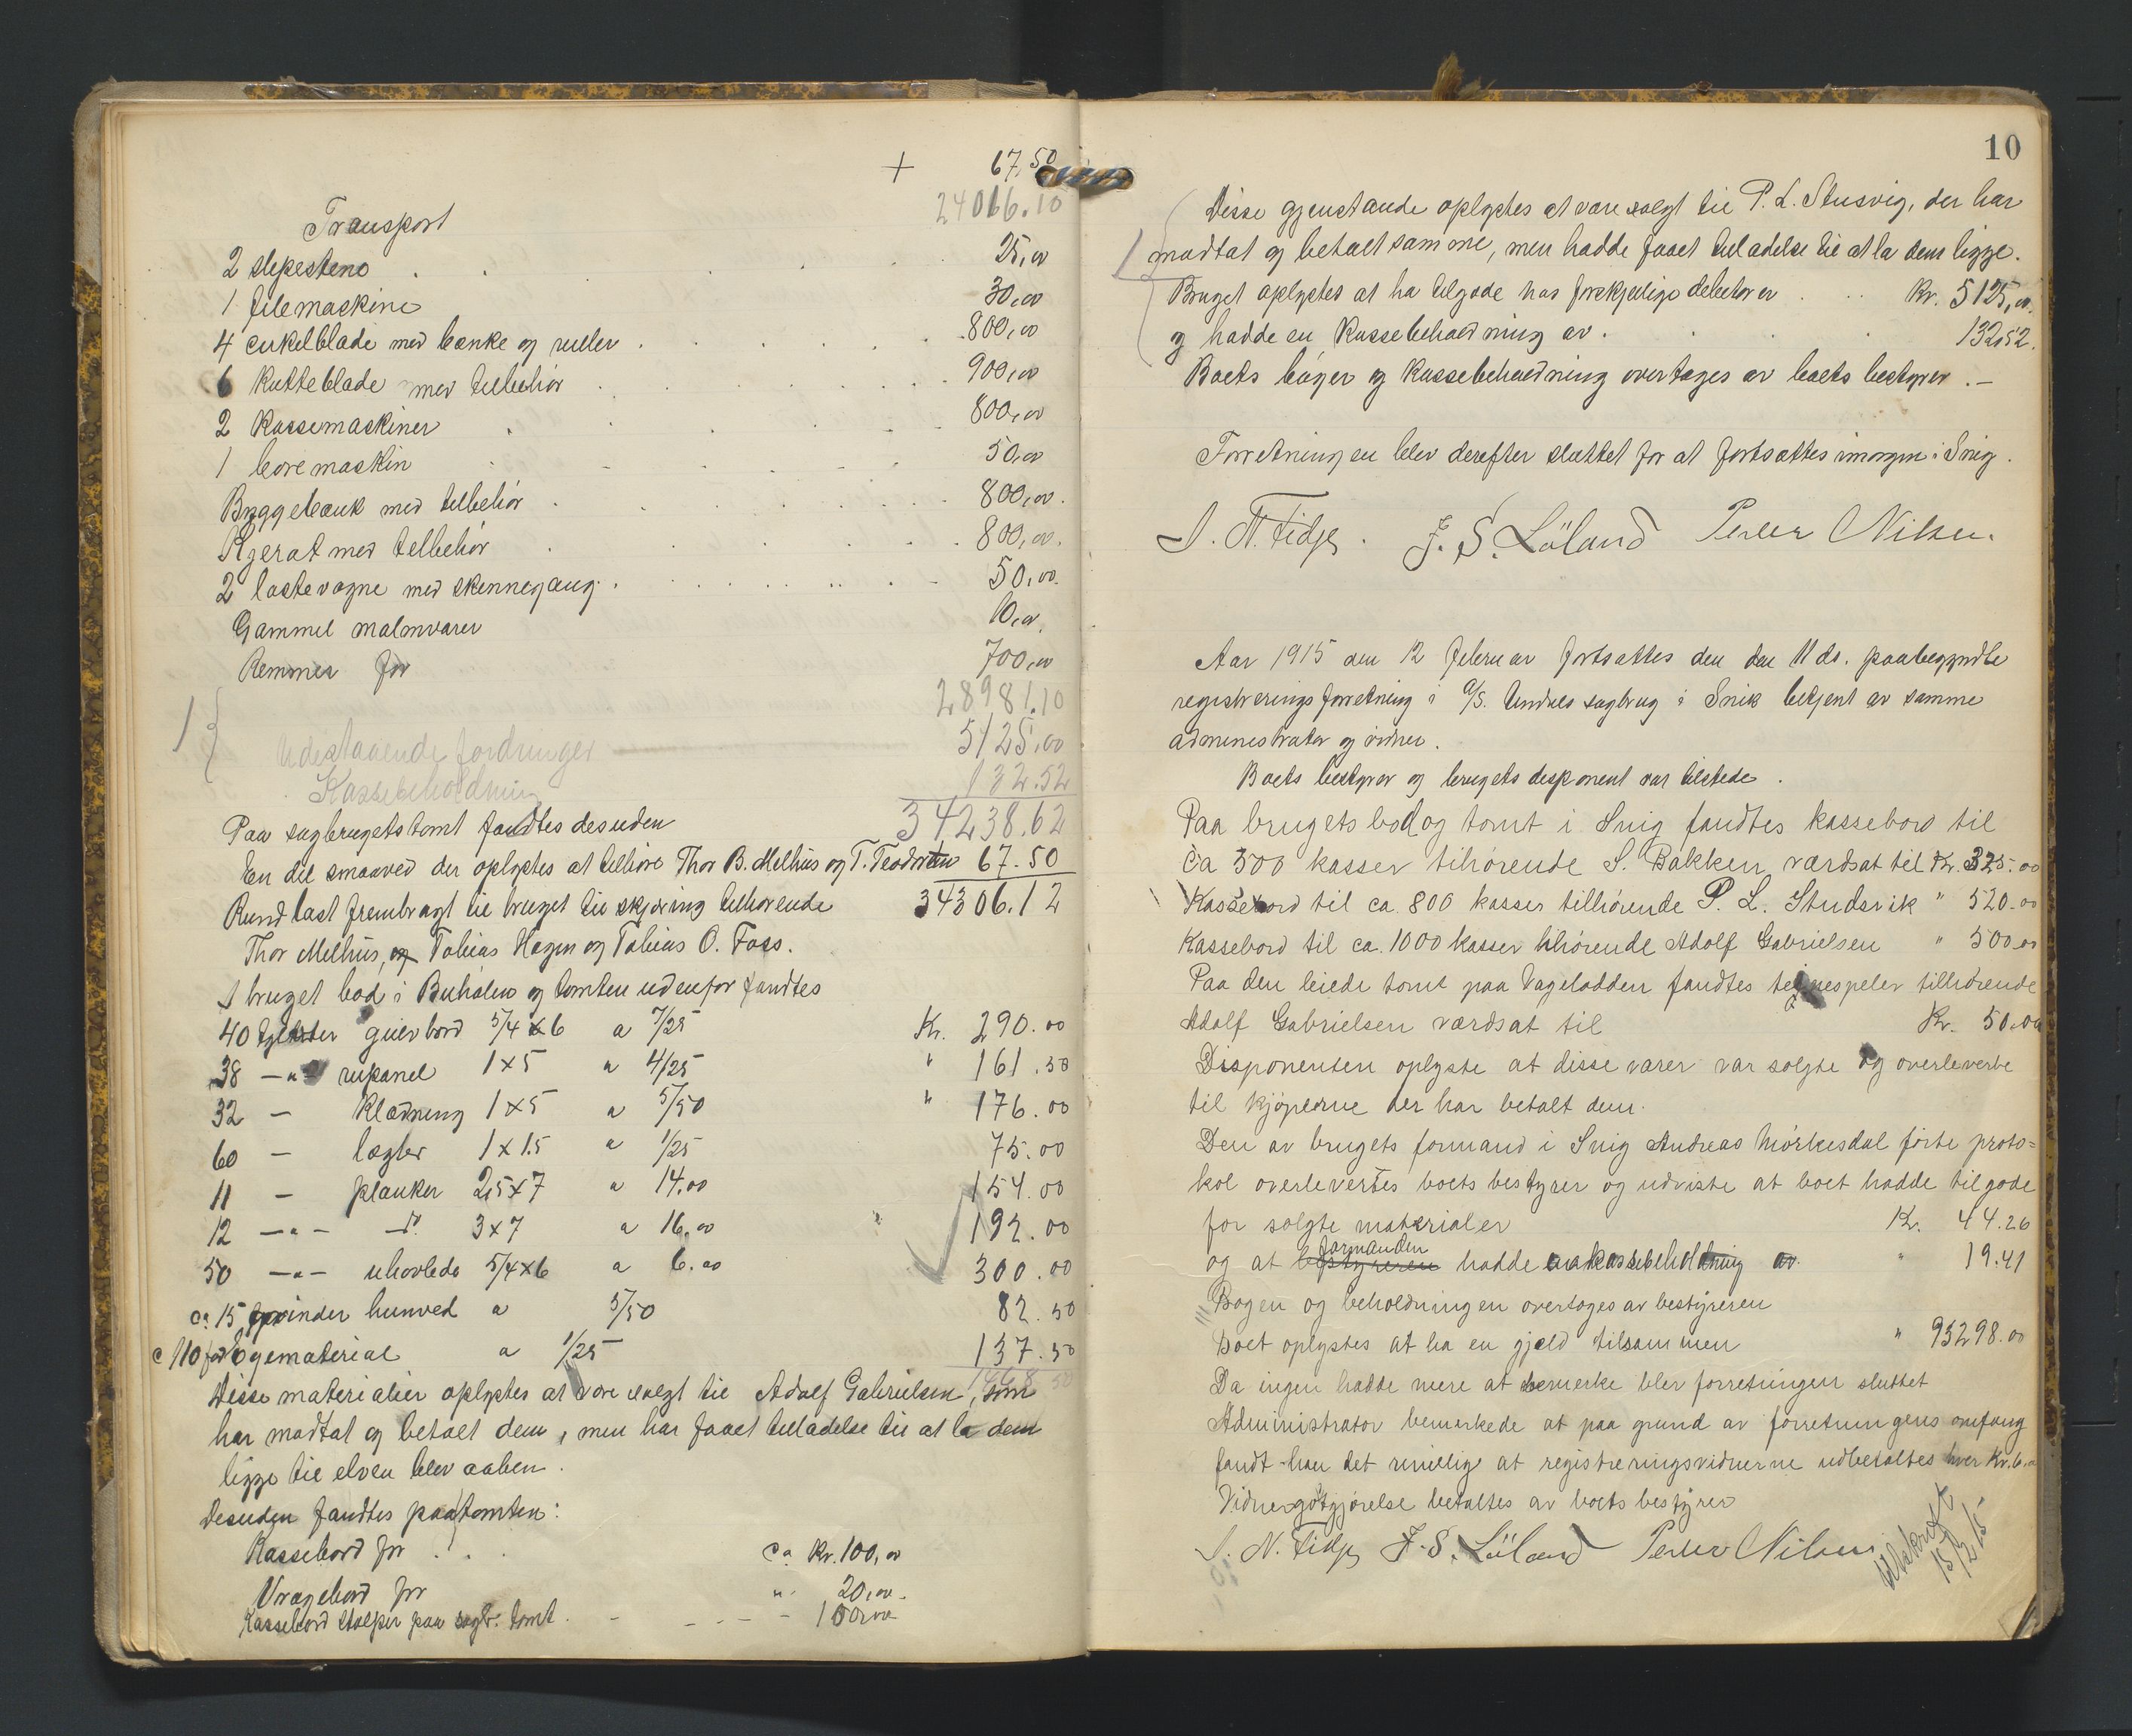 + 67,50
Transport 24066.10
2 slipestene 25,00
1 filemaskine 30,00
4 cirkelblade med bænke og ruller 800,00
6 kutteblade med tilbehör 900,00
2 Kassemaskiner 800,00
1 boremaskin 50,00
Byggebænk med tilbehör 800,00
Kjerat med tilbehör 800,00
2 lastevogne med skinnegang 50,00
Gammel malmvarer 10,00
Remmer for 700,00
28981.10
1 Udestaaende fordringer 5125,00
Kassebeholdning 132.52
Paa sagbrugets tomt fandtes desuden 34238.62
En del smaaved der oplystes at tilhöre Thor B. Melhus og T. 67.50
Rundlast frembragt til bruget til skjæring tilhörende 34306.12
Thor Melhus, og Tobias Hagen og Tobias O. Foss.
I bruget bod i Buholen og tomten udenfor fandtes
40 tylvter gulvbord 5/4 x 6 a 7/25 Kr. 290.00
38 —"— rupanel 1 x 5 a 4/25 " 161.50
32 — Klædning 1 x 5 a 5/50 " 176.00
60 — lægter 1 x 1.5 a 1/25 75.00
11 — planker 2,5 x 7 a 14.00 154.00
12 —"— do. 3 x 7 a 16,00 " 192.00
50 —"— uhövlede 5/4 x 6 a 6.00 300.00
ca 15 hunved a 5/50 82.50
c 110 a 1/25 137.50
1468.50
Disse materialier oplystes at være solgt til Adolf Gabrielsen, som
har modtat og betalt dem, men har faaet tilladelse til at la dem
ligge til elven blev aaben.
Desuden fandtes paa tomten:
Kassebord for ca Kr. 100,00
Vragbord for " 20,00
Kassebord stolper paa sagbr. tomt 100,00
10
Disse gjenstande oplystes at være solgt til P. L. Stusvig, der har
1 modtat og betalt samme, men hadde faaet tilladelse til at la dem ligge.
Bruget oplystes at ha tilgode hos forskjellige debitorer Kr. 5125,00.
og hadde en Kassebeholdning av 132,52.
Boets böger og Kassebeholdning overtoges av boets bestyrer.—
Forretningen blev derefter sluttet for at fortsættes imorgen i Snig.
S. N. Fidje. J. S. Löland Peder Nilsen.
Aar 1915 den 12 februar fortsattes den den 11 ds. paabegyndte
registreringsforretning i A/S. Undals sagbrug i Snik betjent av samme
administrator og vidner.
Boets bestyrer og brugets disponent var tilstede.
Paa brugets bod og tomt i Snig fandtes kassebord til
ca 500 kasser tilhørende S. Bakken værdsat til Kr. 325.00
Kassebord til ca. 800 kasser tillhörende P. L. Studsvik " 520.00
Kassebord til ca. 1000 kasser tilhörende Adolf Gabrielsen " 500.00
Paa den leiede tomt paa Vagelodden fandtes tillhörende
Adolf Gabrielsen værdsat til Kr. 50.00
Disponenten oplyste at disse varer var solgte og overleverte
til kjöperne der har betalt dem.
Den av brugets formand i Snig Andreas Mörkesdal förte proto=
kol overlevertes boets bestyrer og udviste at boet hadde tilgode
for solgte materialer Kr. 44.26
og at bestyreren formanden hadde en kassebeholdning av " 19.41
Bogen og beholdningen overtoges av bestyreren
Boet oplystes at ha en gjæld tilsammen " 95298.00
Da ingen hadde mere at bemerke blev forretningen sluttet
Administrator bemerkede at paa grund av forretningens omfang
fandt han det rimelig at registreringsvidnerne udbetaltes hver Kr. 6.00
Vidnergodtgjörelse betaltes av boets bestyrer
S. N. Fidje J. S. Löland Peder Nilsen
Utskrift
15/2 15